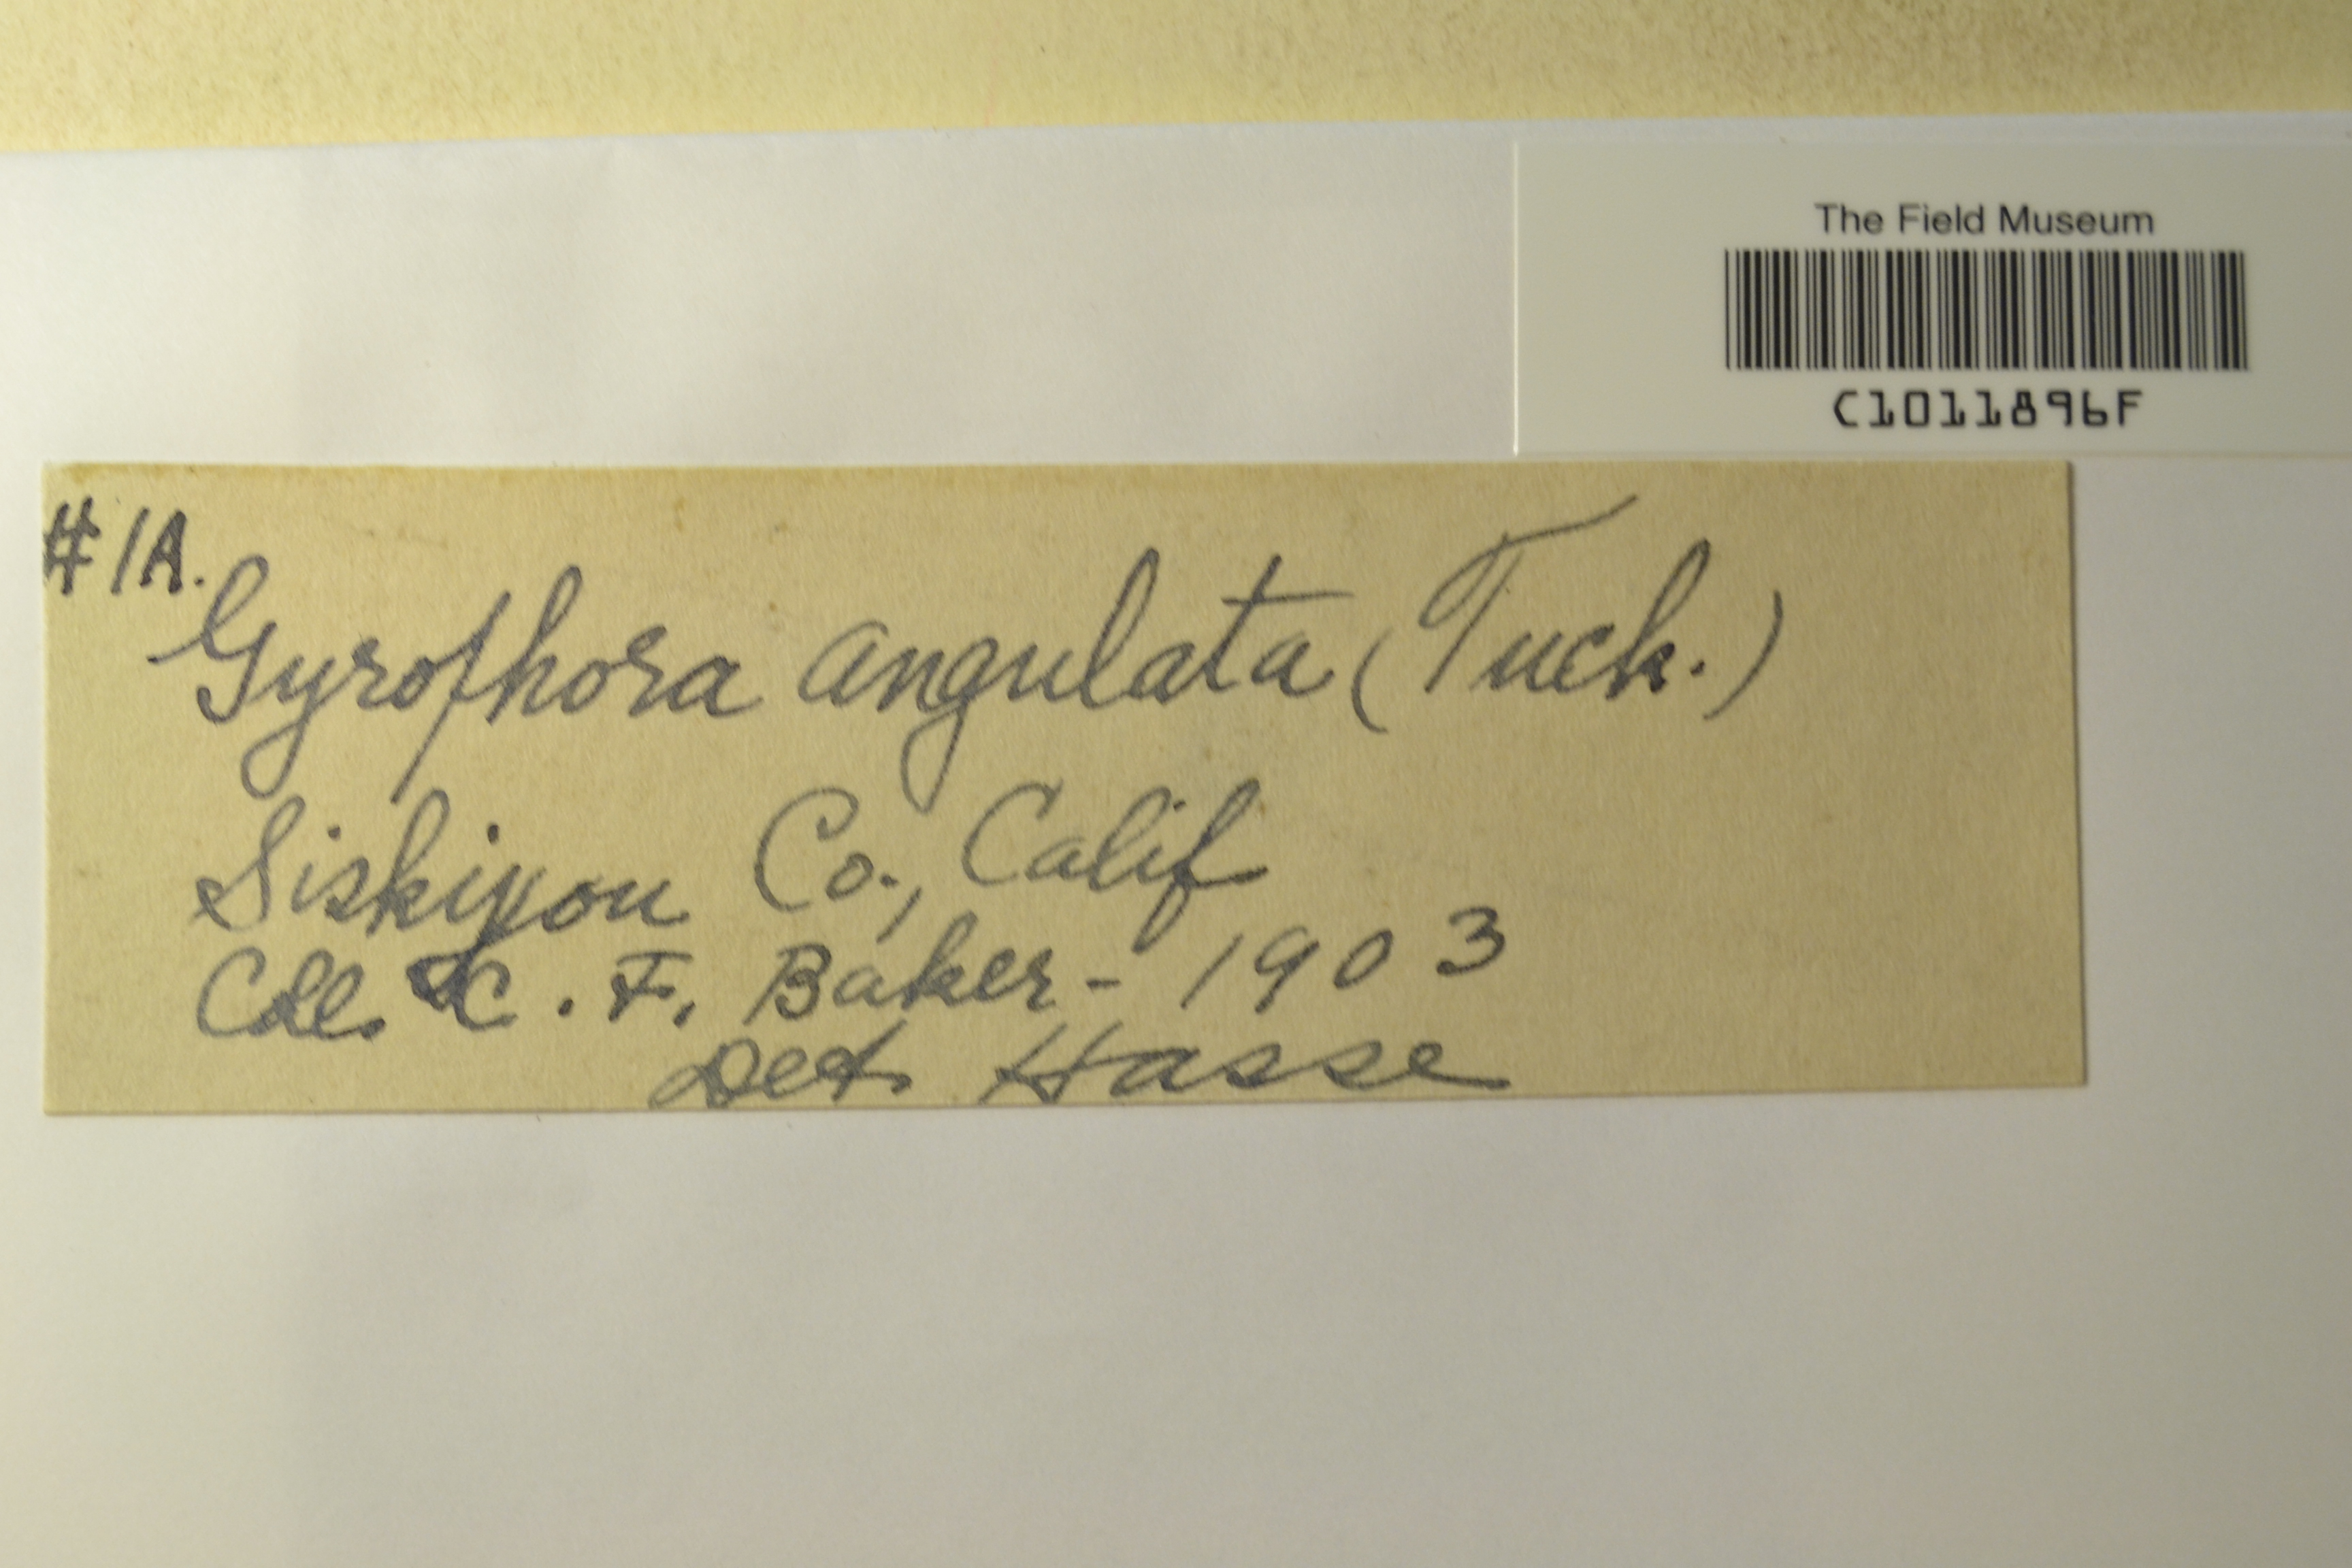 The Field Museum
C1011896F
#1A.
Gyrophora angulata (Tuck.)
Siskiyou Co., Calif
Coll. C. F. Baker - 1903
Det. Hasse